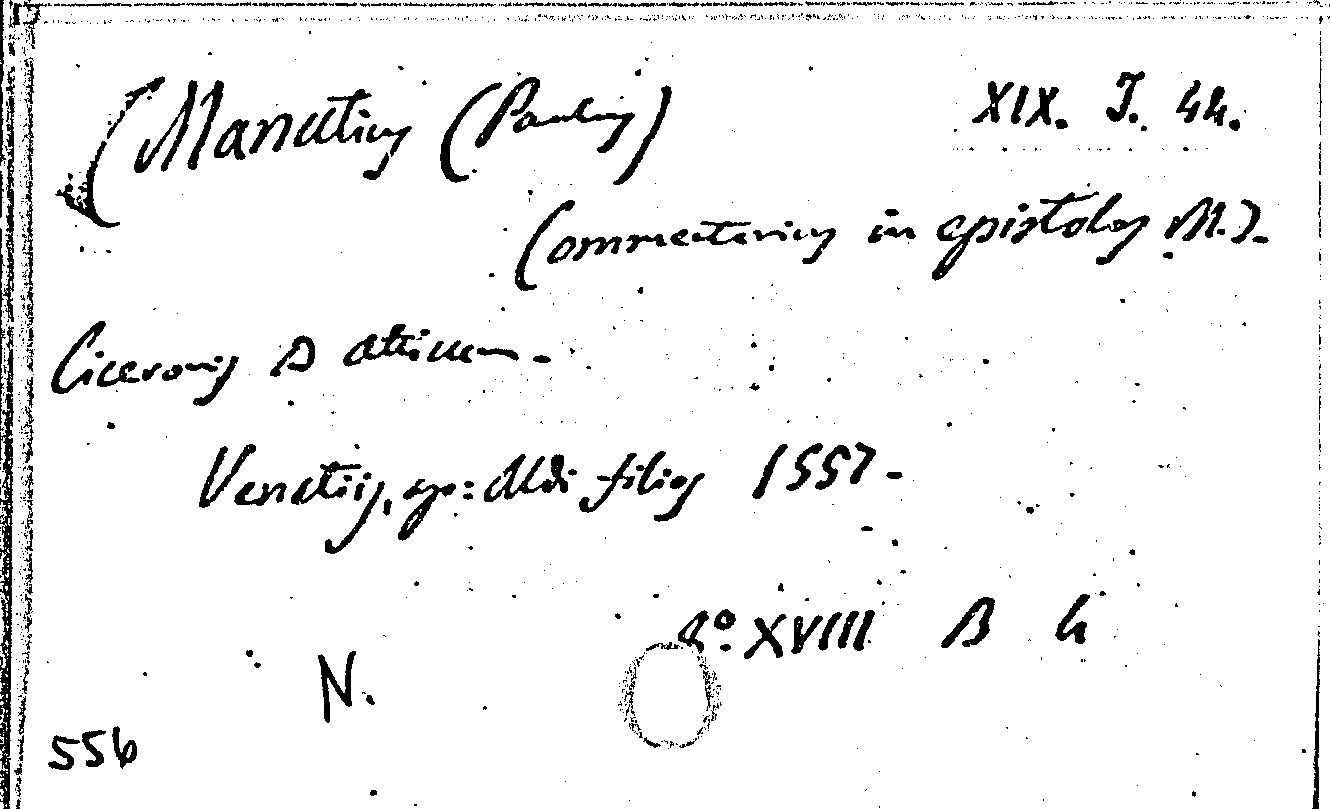 (Manutius (Paulus) XIX. J. 44.
Commentarius in epistolas M. T.
Ciceronis ad atticum.
Venetiis, ap: Aldi filios 1557.
8º XVIII B 4
N.
556